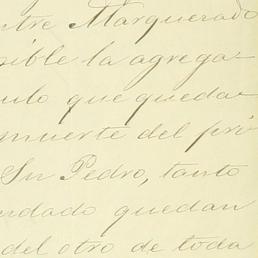 tre Marquerado
sible la agrega-
ulo que queda-
muerte del pri
Sn Pedro, tanto
ndado quedan
del otro de toda